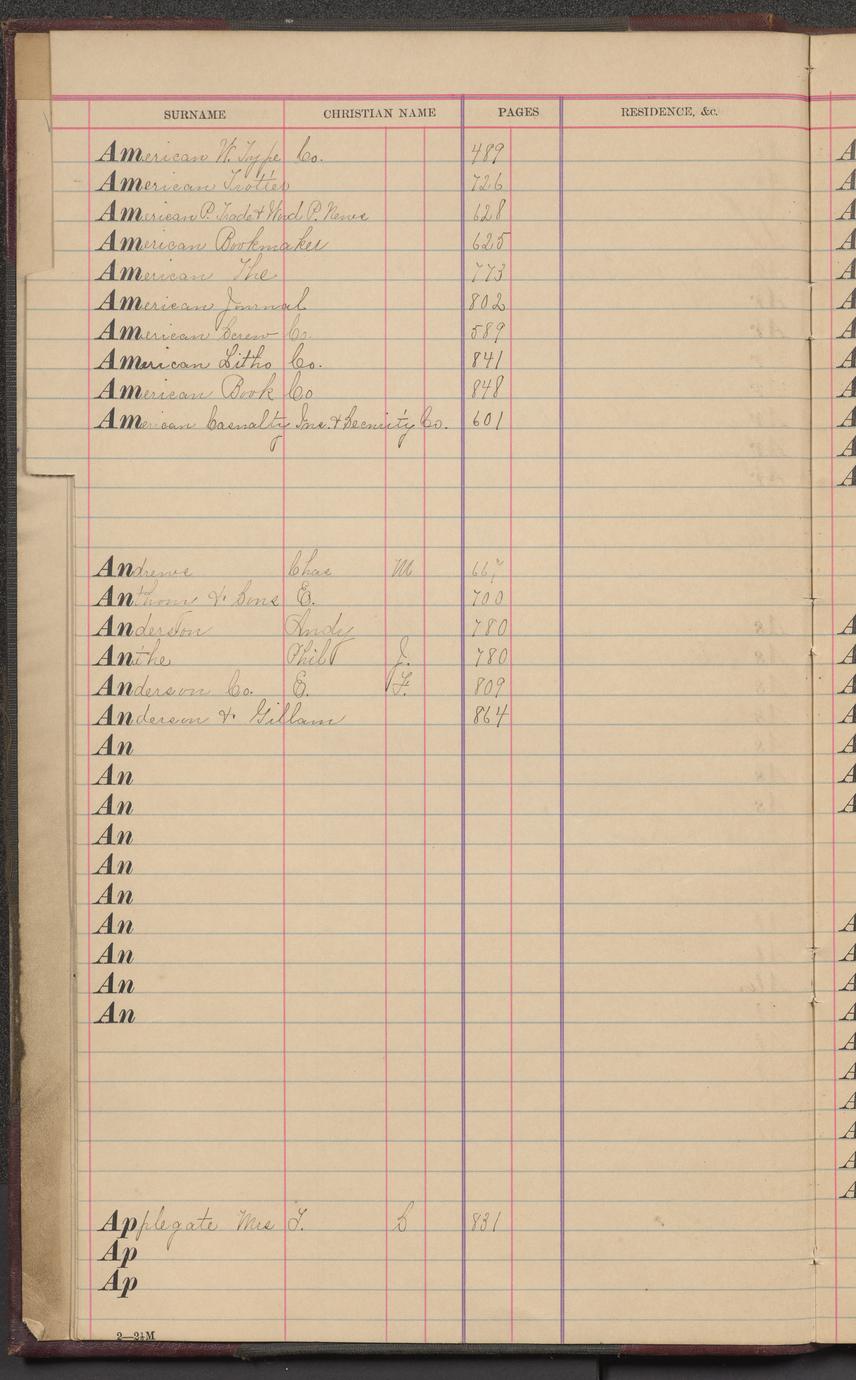 SURNAME CHRISTIAN NAME PAGES RESIDENCE, &c.
American W. Type Co. 489
American Trotter 726
American P. Trade & Word P. News 628
American Bookmaker 625
American The 773
American Journal 802
American Screw Co. 589
American Litho Co. 841
American Book Co 848
American Casualty Ins. & Security Co. 601
Andrews Chas M 667
Anthony & Sons E. 700
Anderson Andy 780
Anthe Phil J. 780
Anderson Co. E. F. 809
Anderson & Gillam 864
An
An
An
An
An
An
An
An
An
An
Applegate Mrs F. S 831
Ap
Ap
2—2½M